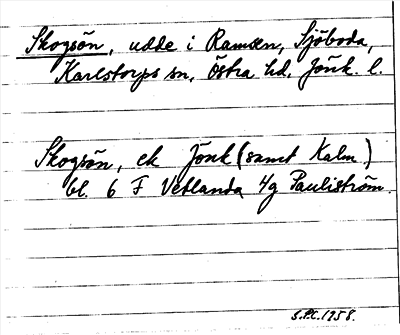 Skogsön, udde i Ramsen, Sjöboda,
Karlstorps sn, Östra hd, Jönk. l.
Skogsön, ek Jönk (samt Kalm.)
bl. 6 F Vetlanda 4g Pauliström.
S.P.C. 1958.